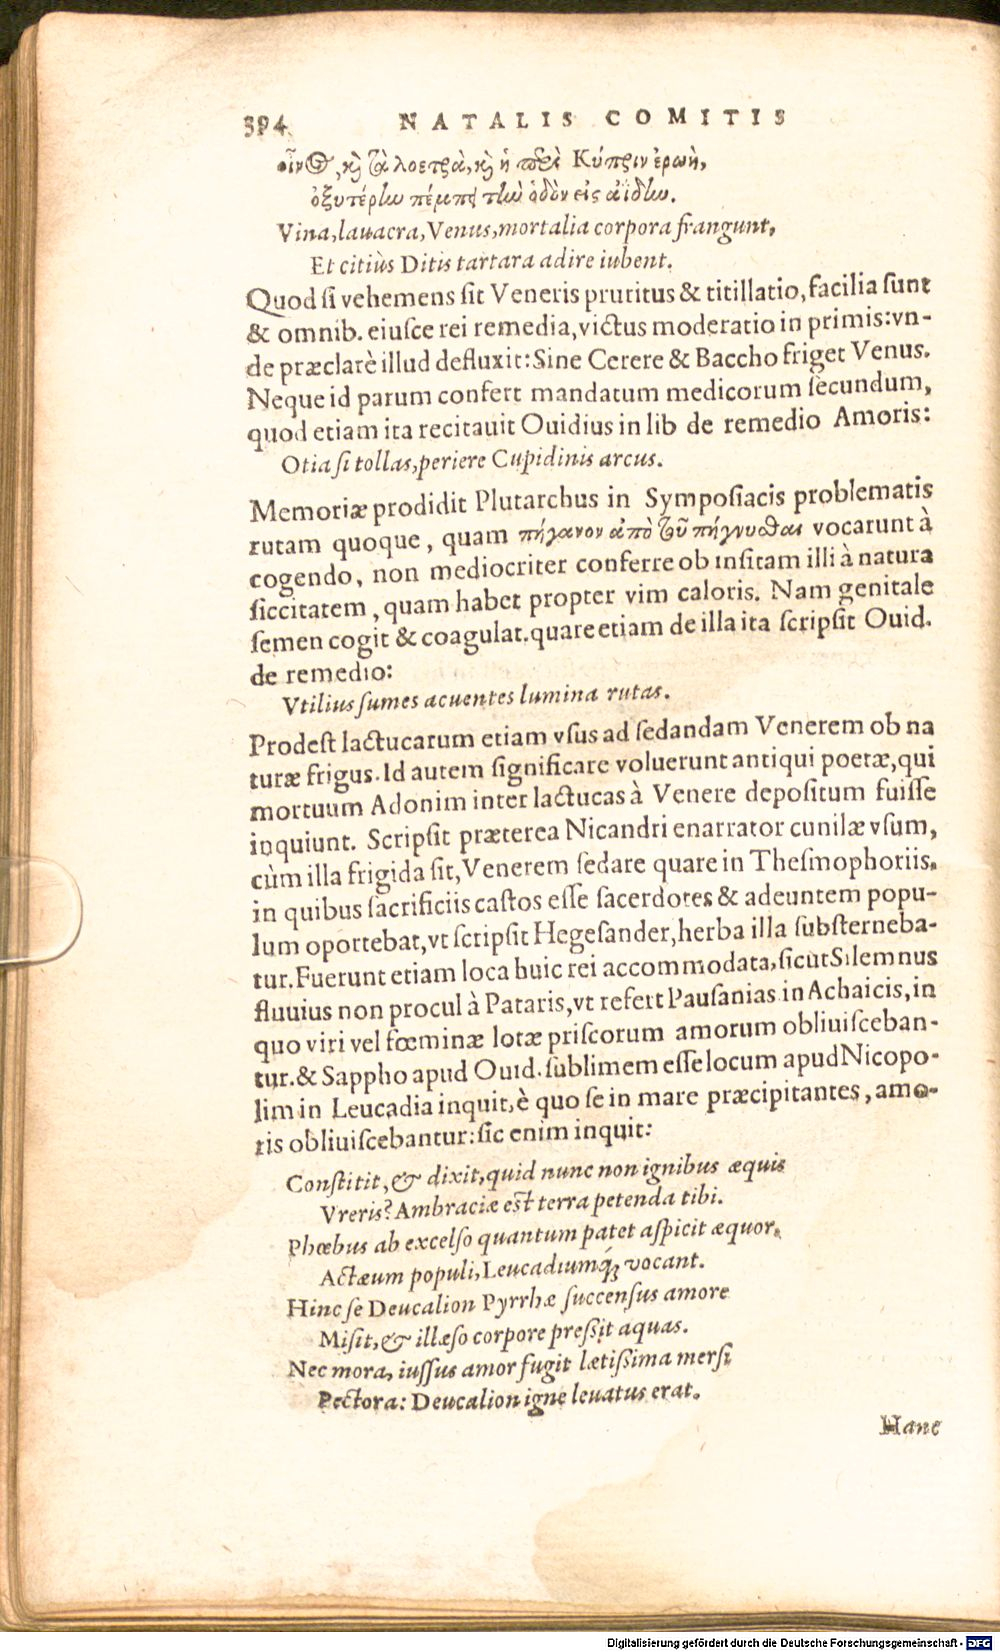 394 NATALIS COMITIS
οἶνος, καὶ τὰ λοετρὰ, καὶ ἡ περὶ Κύπριν ἐρωὴ,
ὀξυτέρlω πέμπει τlὼ ὁδὸν εἰς ἀΐδlω.
Vina, lauacra, Venus, mortalia corpora frangunt,
Et citiùs Ditis tartara adire iubent.
Quod ſi vehemens ſit Veneris pruritus & titillatio, facilia ſunt
& omnib. eiuſce rei remedia, victus moderatio in primis: vn-
de præclarè illud defluxit: Sine Cerere & Baccho friget Venus.
Neque id parum confert mandatum medicorum ſecundum,
quod etiam ita recitauit Ouidius in lib de remedio Amoris:
Otia ſi tollas, periere Cupidinis arcus.
Memoriæ prodidit Plutarchus in Sympoſiacis problematis
rutam quoque, quam πήγανον ἀπὸ τοῦ πήγνυσθαι vocarunt à
cogendo, non mediocriter conferre ob inſitam illi à natura
ſiccitatem, quam habet propter vim caloris. Nam genitale
ſemen cogit & coagulat. quare etiam de illa ita ſcripſit Ouid.
de remedio:
Vtilius ſumes acuentes lumina rutas.
Prodeſt lactucarum etiam vſus ad ſedandam Venerem ob na
turæ frigus. Id autem ſignificare voluerunt antiqui poetæ, qui
mortuum Adonim inter lactucas à Venere depoſitum fuiſſe
inquiunt. Scripſit præterea Nicandri enarrator cunilæ vſum,
cùm illa frigida ſit, Venerem ſedare quare in Theſmophoriis.
in quibus ſacrificiis caſtos eſſe ſacerdotes & adeuntem popu-
lum oportebat, vt ſcripſit Hegeſander, herba illa ſubſterneba-
tur. Fuerunt etiam loca huic rei accommodata, ſicut Silemnus
fluuius non procul à Pataris, vt refert Pauſanias in Achaicis, in
quo viri vel fœminæ lotæ priſcorum amorum obliuiſceban-
tur. & Sappho apud Ouid. ſublimem eſſe locum apud Nicopo-
lim in Leucadia inquit, è quo ſe in mare præcipitantes, amo-
ris obliuiſcebantur: ſic enim inquit:
Conſtitit, & dixit, quid nunc non ignibus æquis
Vreris? Ambraciæ eſt terra petenda tibi.
Phœbus ab excelſo quantum patet aſpicit æquor,
Actæum populi, Leucadiumq́; vocant.
Hinc ſe Deucalion Pyrrhæ ſuccenſus amore
Miſit, & illæſo corpore preſſit aquas.
Nec mora, iuſſus amor fugit lætiſſima merſi
Pectora: Deucalion igne leuatus erat.
Hanc
Digitalisierung gefördert durch die Deutsche Forschungsgemeinschaft - DFG